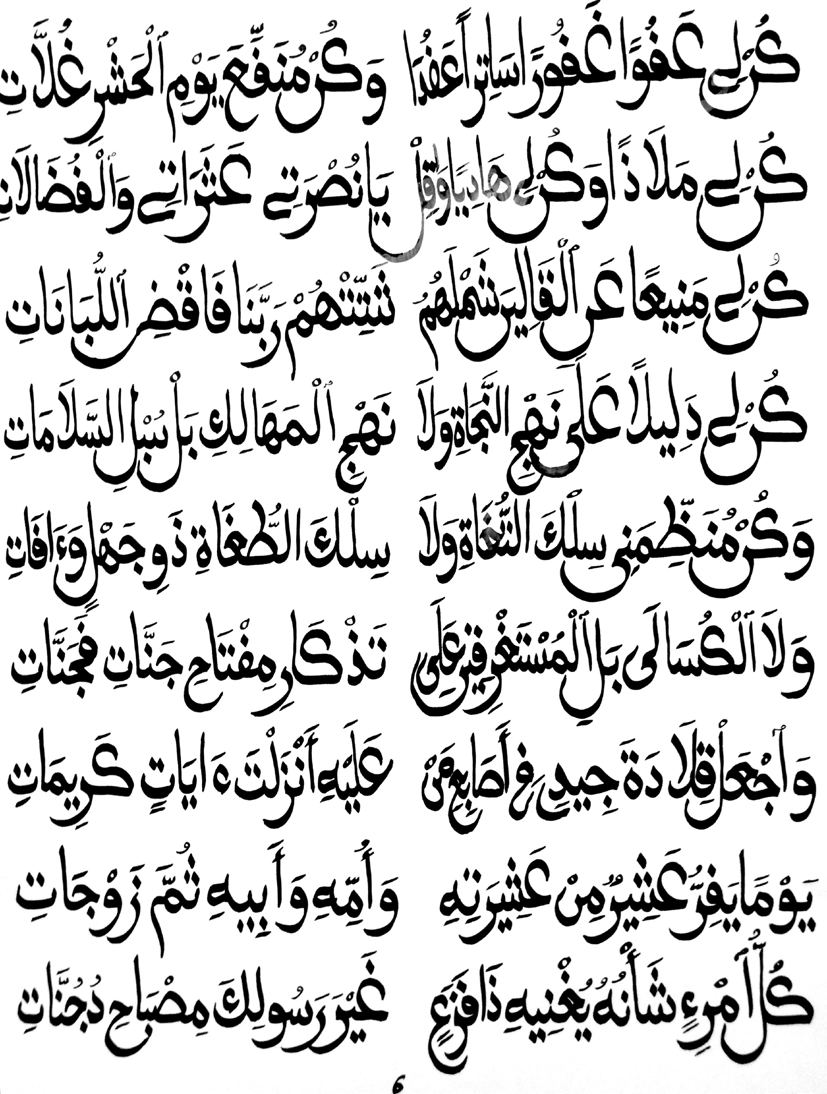 كُن لِي عَفُوًّا غَفُورًا سَاتِرًا عُقَدًا وَكُنْ مُنَفِّعَ يَوْمِ ٱلْحَشْرِ غُلَّاتِ
كُن لِي مَلَاذًا وَكُن لِي هَادِيًا وَأَقِلْ يَا نُصْرَتِي عَثَرَاتِي وَٱلْفُضَالَاتِ
كُن لِي مَنِيعًا عَنِ ٱلْقَالِينَ شَمْلَهُمُ شَتِّتْهُمْ رَبَّنَا فَاقْضِ ٱللُّبَانَاتِ
كُن لِي دَلِيلًا عَلَى نَهْجِ النَّجَاةِ وَلَا نَهْجِ ٱلْمَهَالِكِ بَلْ سُبْلِ السَّلَامَاتِ
وَكُنْ مُنَظِّمَنِي سِلْكَ التُّقَاةِ وَلَا سِلْكَ الطُّغَاةِ ذَوِي جَهْلٍ وَءَافَاتِ
وَلَا ٱلْكُسَالَى بَلِ ٱلْمُسْتَغْرِقِينَ عَلَى تَذْكَارِ مِفْتَاحِ جَنَّاتٍ فَجَنَّاتِ
وَٱجْعَلْ قِلَادَةَ جِيدِي فِي أَصَابِعِ مَنْ عَلَيْهِ أَنْزَلْتَ ءَايَاتٍ كَرِيمَاتِ
يَوْمًا يَفِرُّ عَشِيرٌ مِنْ عَشِيرَتِهِ وَأُمِّهِ وَأَبِيهِ ثُمَّ زَوْجَاتِ
كُلُّ ٱمْرِءٍ شَأْنُهُ يُغْنِيهِ ذَا فَزَعٍ غَيْرَ رَسُولِكَ مِصْبَاحِ دُجُنَّاتِ
6